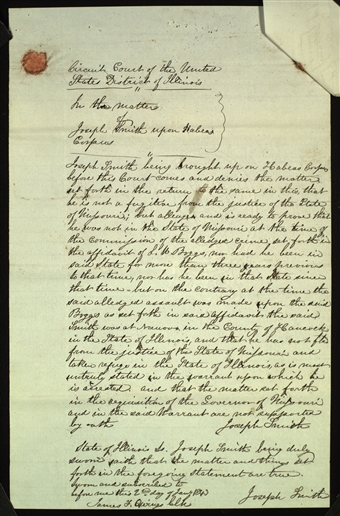 Circuit Court of the United
States District of Illinois
In the matter
of
Joseph Smith upon Habeas
Corpus
Joseph Smith being brought up on Habeas Corpus
before this Court comes and denies the matter
set forth in the return to the same in this, that
he is not a fugitive from the justice of the State
of Missouri; but alleges and is ready to prove that
he was not in the State of Missouri at the time of
the commission of the alleged crime set forth in
the affidavit of L. W. Boggs, nor had he been in
said State for more than three years previous
to that time, nor has he been in that State since
that time— but on the contrary at the time the
said alleged assault was made upon the said
Boggs as set forth in said affidavit the said
Smith was at Nauvoo in the County of Hancock
in the State of Illinois, and that he has not fled
from the justice of the State of Missouri and
taken refuge in the State of Illinois, as is most
untruly stated in the warrant upon which he
is arrested. and that the matter set forth
in the requisition of the Governor of Missouri
and in the said Warrant are not supported
by oath
Joseph Smith
State of Illinois Ss. Joseph Smith being duly
sworn saith that the matter and things set
forth in the foregoing statement are true
sworn and subscribed to
before me this 2d day of Jany
Joseph Smith
James F. Owings Clk